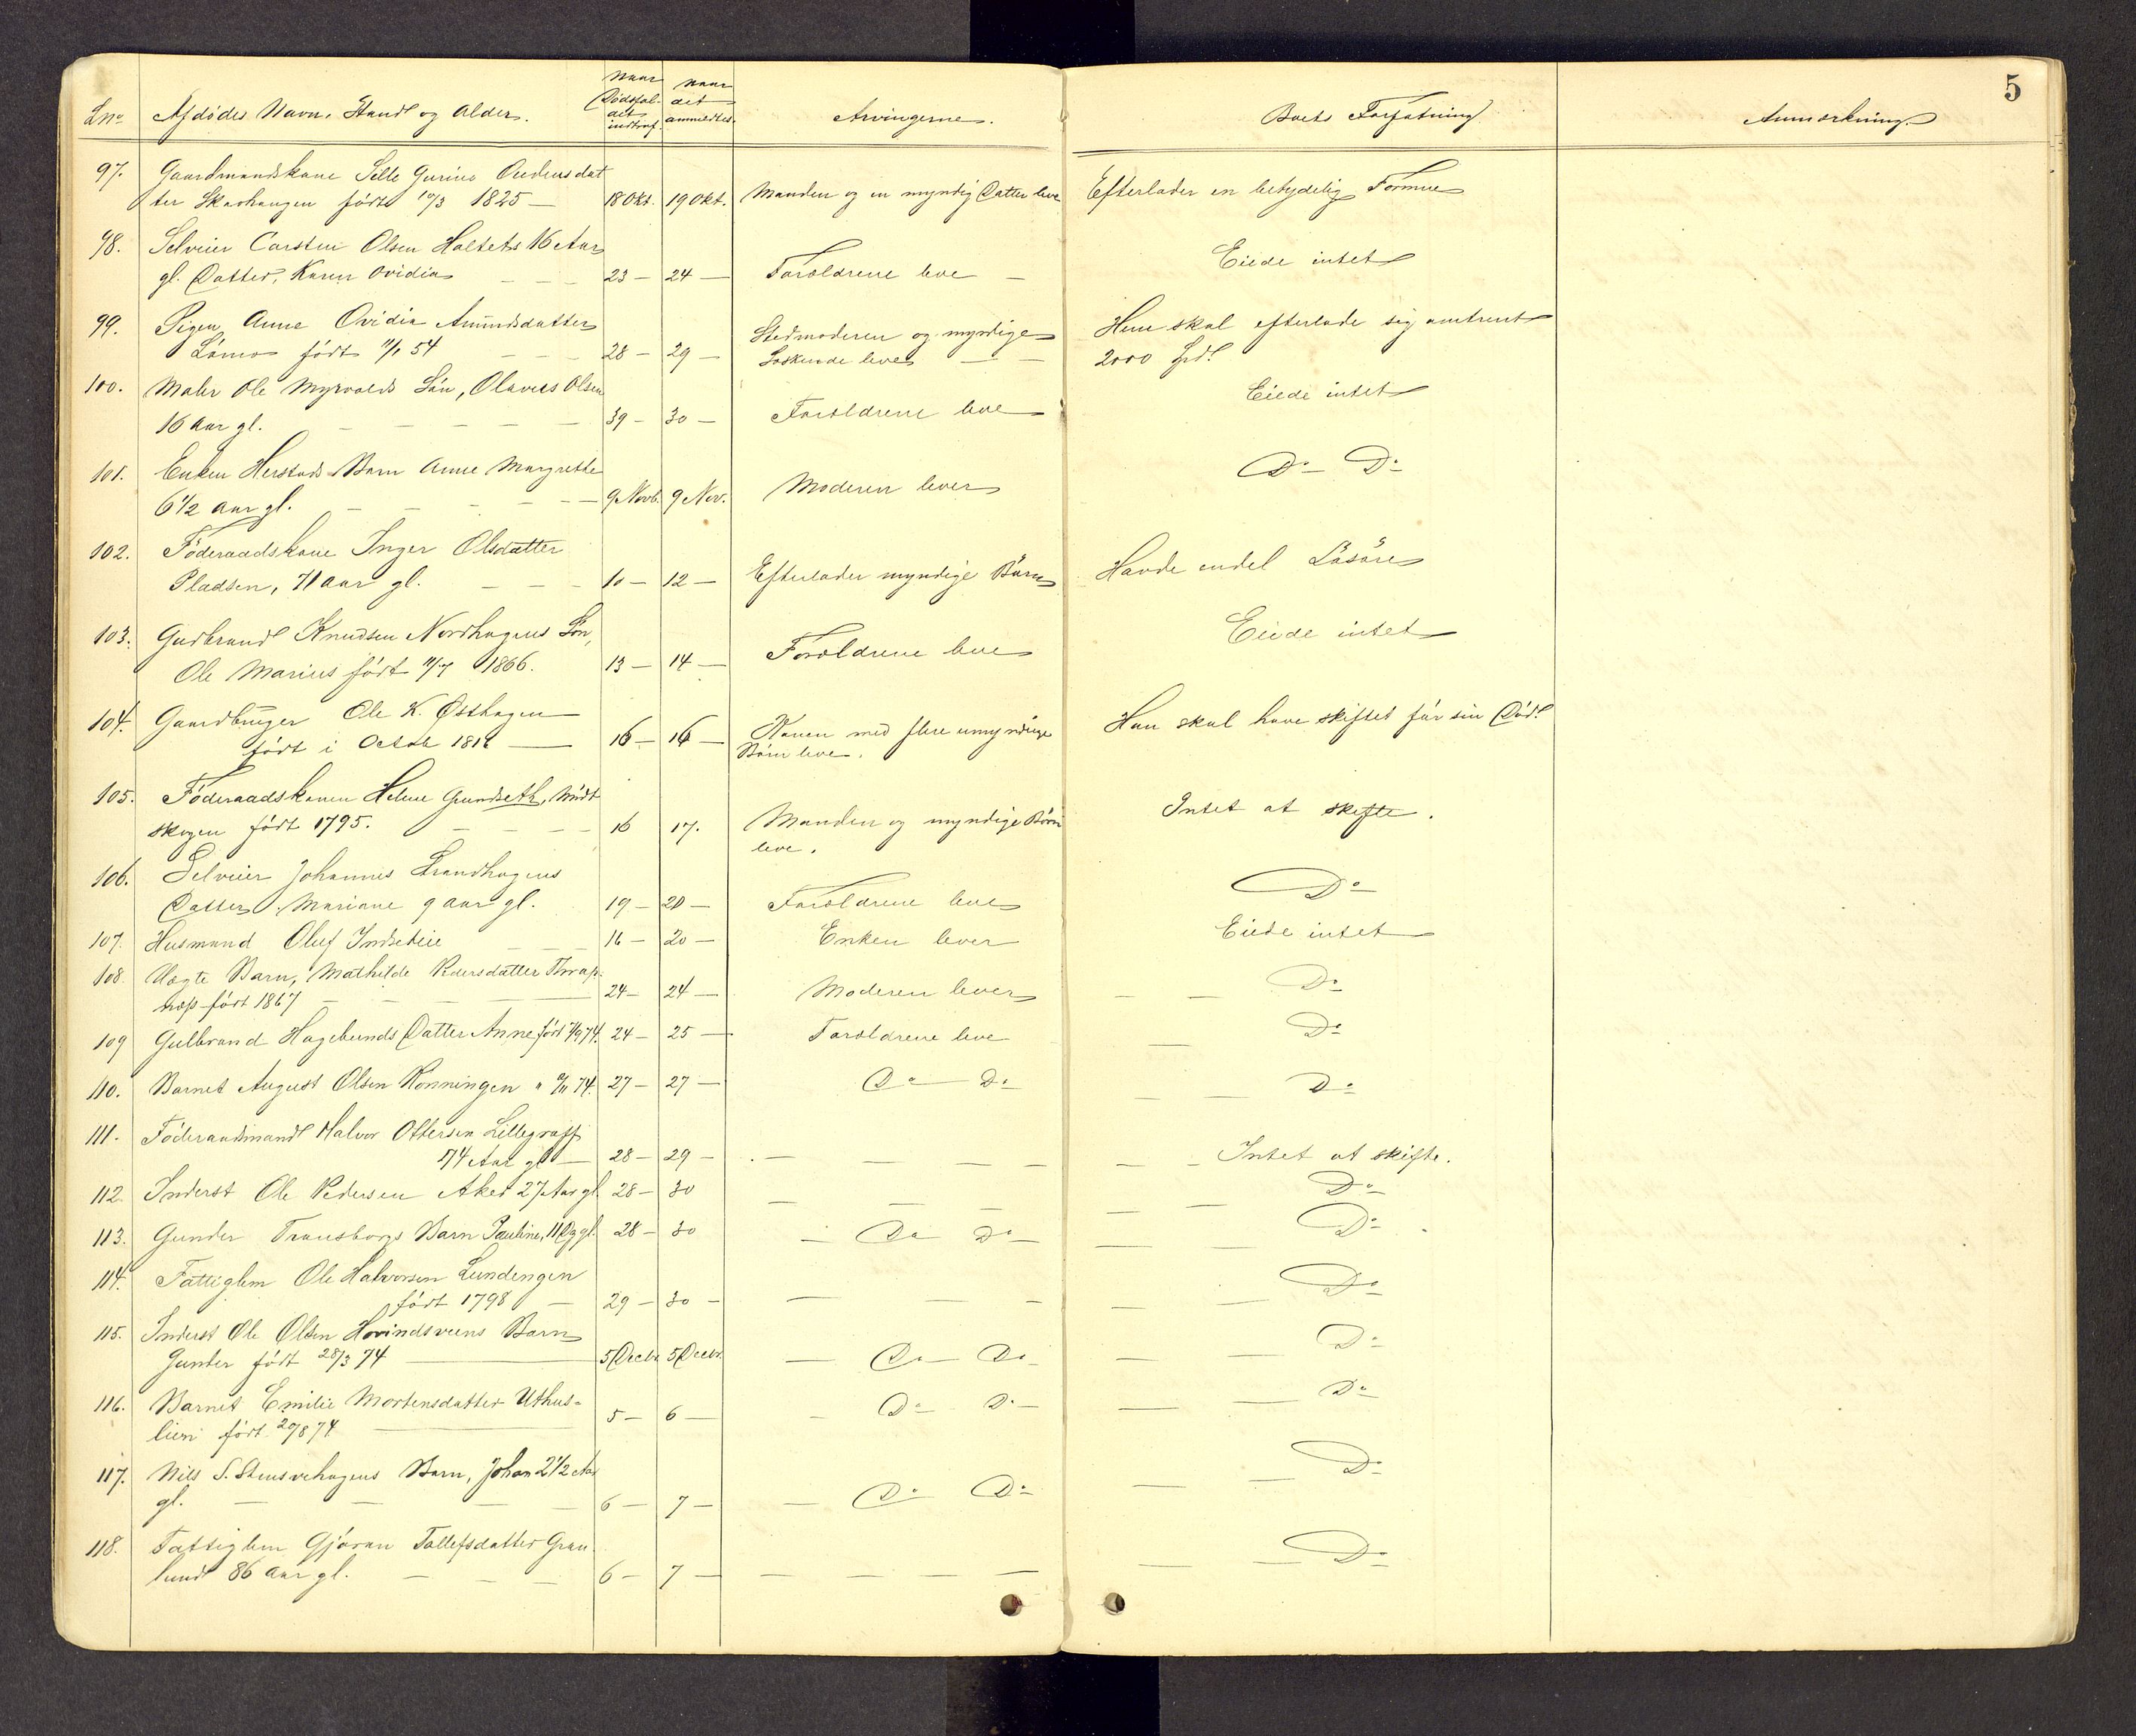 5
Lno Afdødes Navn, Stand og Alder. Naar Dødsfaldet indtraf. Naar det anmeldtes. Arvingerne. Boets Forfatning Anmærkning.
97. Gaardmandskone Sille Gurine Audensdat
ter Skarhaugen født 10/3 1825 — 18 Okt. 19 Okt. Manden og en myndig Datter leve Efterlader en betydelig Formue
98. Selveier Carsten Olsen Haltets 16 Aar
gl. Datter, Karen Ovidia — — — 23 — 24 — Forældrene leve — Eiede intet
99. Pigen Anne Ovidia Amundsdatter
Lømo født 11/1 54 — — 28 — 29 — Stedmoderen og myndige Søskende lever — — Hun skal efterlade sig omtrent 2000 Spdl
100. Maler Ole Myrvolds Søn, Olaves Olsen
16 Aar gl. — — — — — 39 — 30 — Forældrene leve Eiede intet
101. Enken Herstads Barn Anne Margrethe
6 1/2 Aar gl. — — — — — 9 Novb. 9 Nov. Moderen lever Do Do
102. Föderaadskone Inger Olsdatter
Pladsen, 71 aar gl. — — — 10 — 12 — Efterlader myndige Børn Havde endel Løsøre
103. Gudbrand Knudsen Nordhagens Søn,
Ole Marius født 11/7 1866. 13 — 14 — Forældrene leve Eiede intet
104. Gaardbruger Ole K. Østhagen
født i Octob 1816 — 16 — 16 — Konen med flere umyndige Børn leve. Han skal have skiftet før sin Død.
105. Föderaadskonen Helene Grundseth, Midt
skogen født 1795. — — — 16 17. Manden og myndige Børn leve. Intet at skifte.
106. Selveier Johannes Strandhagens
Datter Mariane 9 aar gl. 19 — 20 — Forældrene leve Do
107. Husmand Oluf Indseteie — — — 16 — 20 — Enken lever Eiede intet
108. Uægte Barn, Mathilde Pedersdatter Thrap-
næs født 1867 — — — 24 — 24 — Moderen lever — — Do
109 Gulbrand Hagebunds Datter Anne født 7/9 74. 24 — 25 — Forældrene leve — Do
110. Barnet August Olsen Rønningen " 9/11 74. 27 — 27 — Do — Do — — Do
111. Föderaadsmand Halvor Ottersen Lillegraff
74 Aar gl — 28 — 29 — — — — — — — Intet at skifte.
112. Inderst Ole Pedersen Aker 27 Aar gl. 28 — 30 — — — — — Do
113. Gunder Transborgs Barn Pauline, 11 Dg gl. 28 — 30 — Do Do — — Do
114. Fattiglem Ole Halvorsen Lundengen
født 1798 — 29 — 30 — — — — — — Do
115. Inderst Ole Olsen Hovindsveens Barn
Gunder født 28/3 74 — 5 Decbr 5 Decbr. — Do Do — — Do
116. Barnet Emilie Mortensdatter Uthus-
lien født 20/8 74 — 5 — 6 — — Do Do — — Do
117. Nils S. Stensvehagens Barn, Johan 2 1/2 Aar
gl. — — — — 6 — 7 — — Do Do — — Do
118. Fattiglem Gjøran Tollefsdatter Gran
lund 86 Aar gl. — — — 6 — 7 — — — — — — — Do